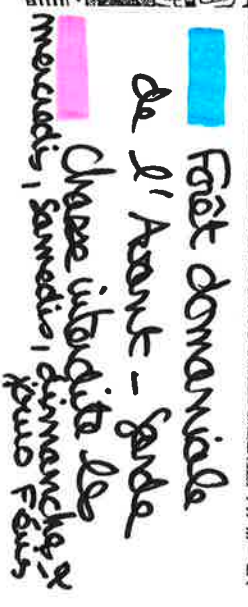 Forêt domaniale
de l'Avant-Garde
Chasse interdite les
mercredis, samedis, dimanches &
jours Fériés